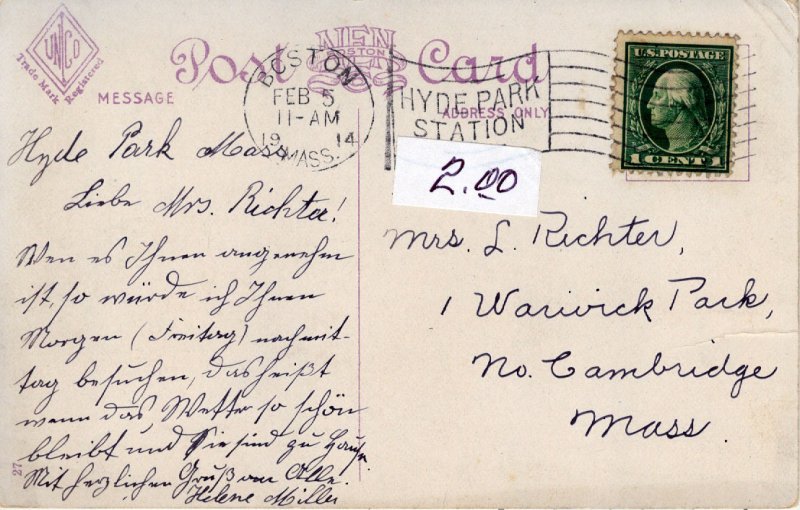 UNCO
Trade Mark Registered
Post Card
NEN
BOSTON
MESSAGE
ADDRESS ONLY
BOSTON
FEB 5
11-AM
1914
MASS.
HYDE PARK
STATION
U.S. POSTAGE
1 CENT 1
2.00
Hyde Park Mass
Liebe Mrs. Richter!
Wen es Ihnen angenehm
ist, so würde ich Ihnen
Morgen (Freitag) nachmit-
tag besuchen, das heißt
wenn das Wetter so schön
bleibt und Sie sind zu Hause.
Mit herzlichen Gruß an Alle.
Helene Miller
27
Mrs. L. Richter,
1 Warwick Park,
No. Cambridge
Mass.